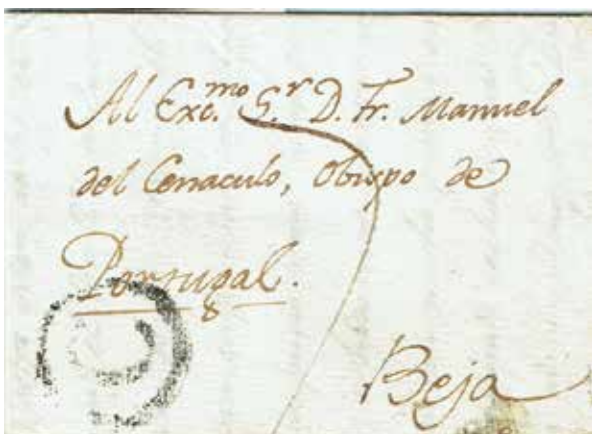 Al Exc.mo S.r D. Fr. Manuel
del Cenaculo, Obispo de
Portugal.
Beja